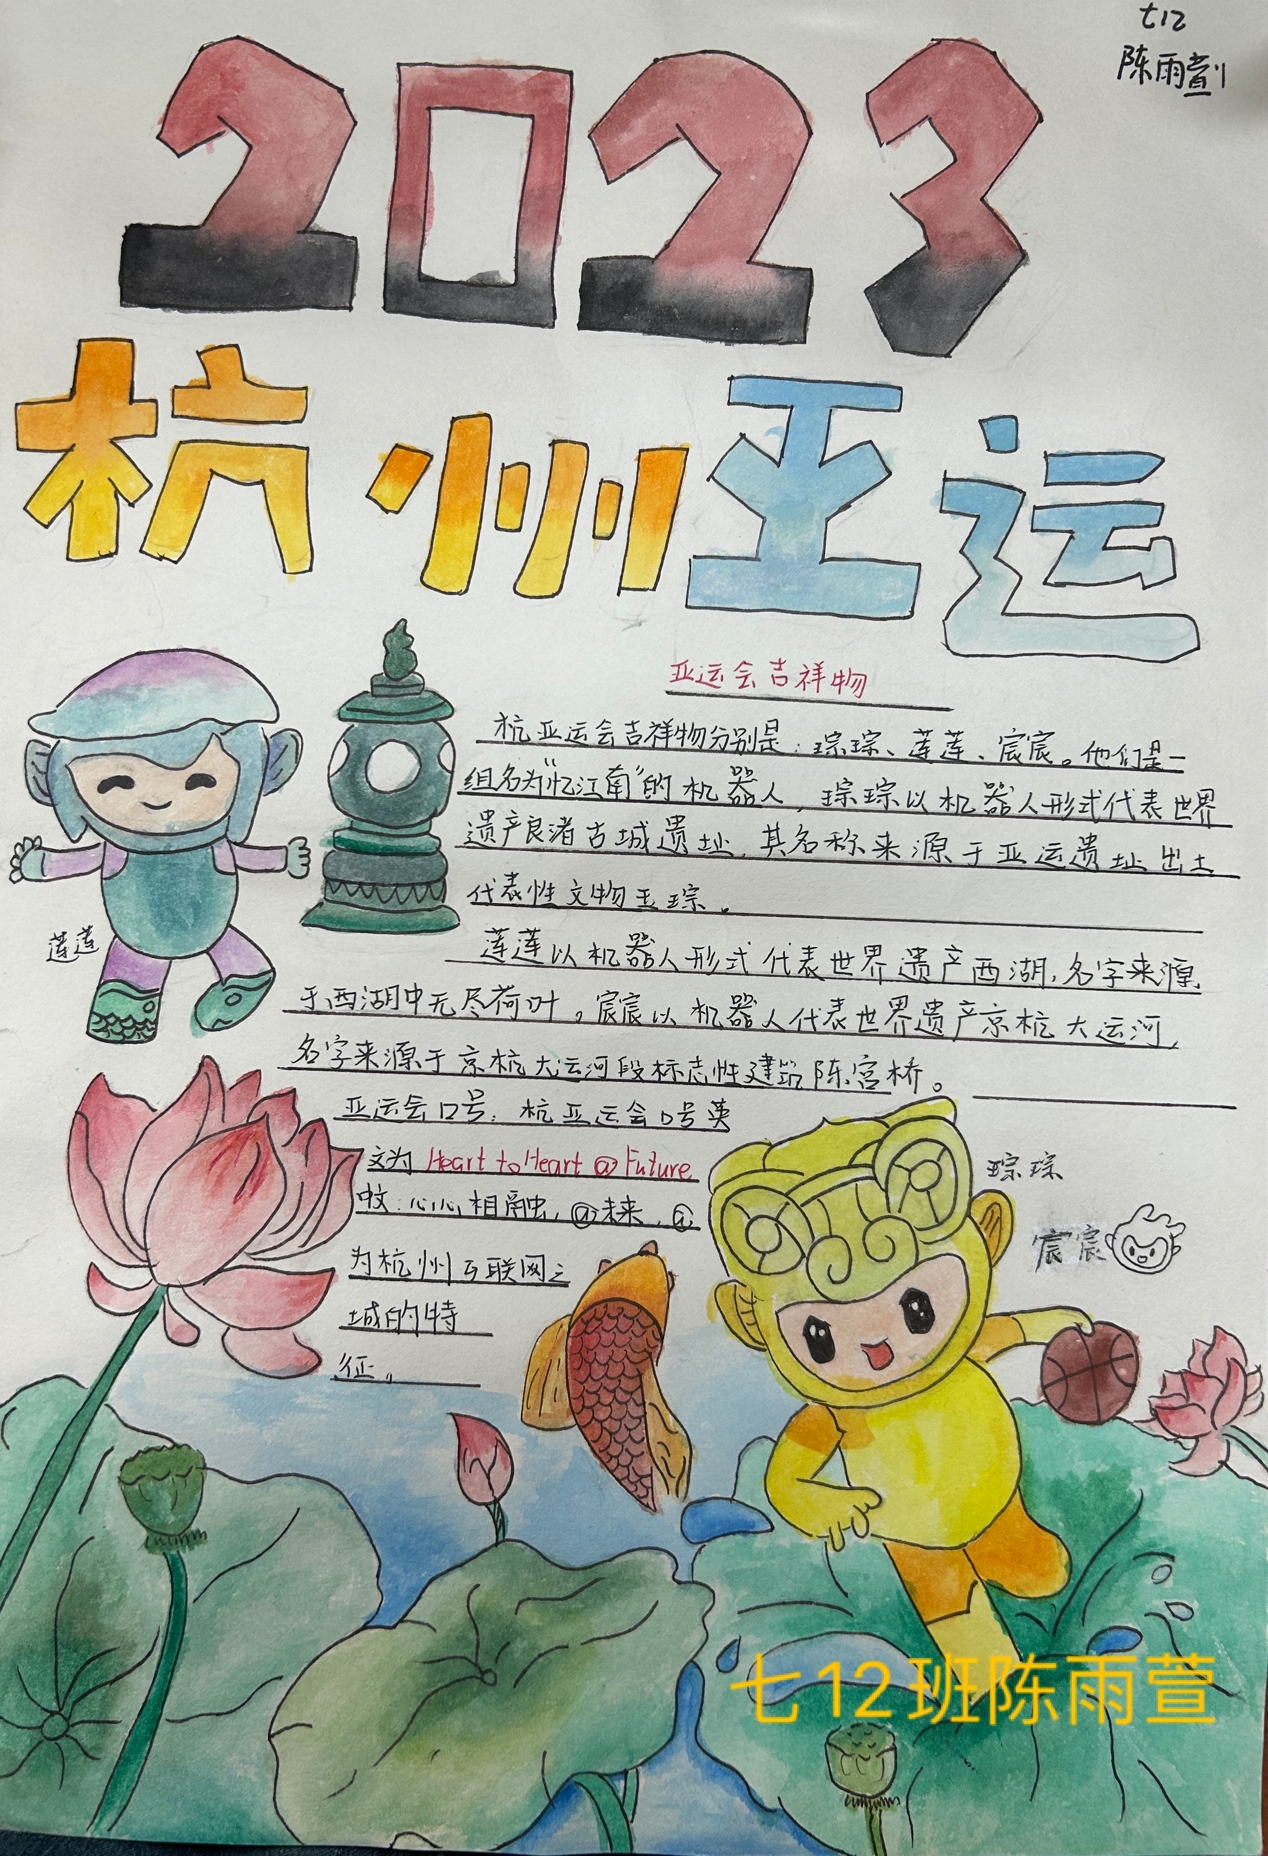 七12
陈雨萱
2023
杭州亚运
亚运会吉祥物
杭亚运会吉祥物分别是:琮琮、莲莲、宸宸。他们是一
组名为“忆江南”的机器人,琮琮以机器人形式代表世界
遗产良渚古城遗址,其名称来源于亚运遗址出土
代表性文物玉琮。
莲莲以机器人形式代表世界遗产西湖,名字来源
于西湖中无尽荷叶。宸宸以机器人代表世界遗产京杭大运河,
名字来源于京杭大运河段标志性建筑陈宫桥。
亚运会口号:杭亚运会口号英
文为Heart to Heart @ Future
中文:心心相融,@未来,@
为杭州互联网之
城的特
征。
莲莲
琮琮
宸宸
七12班陈雨萱